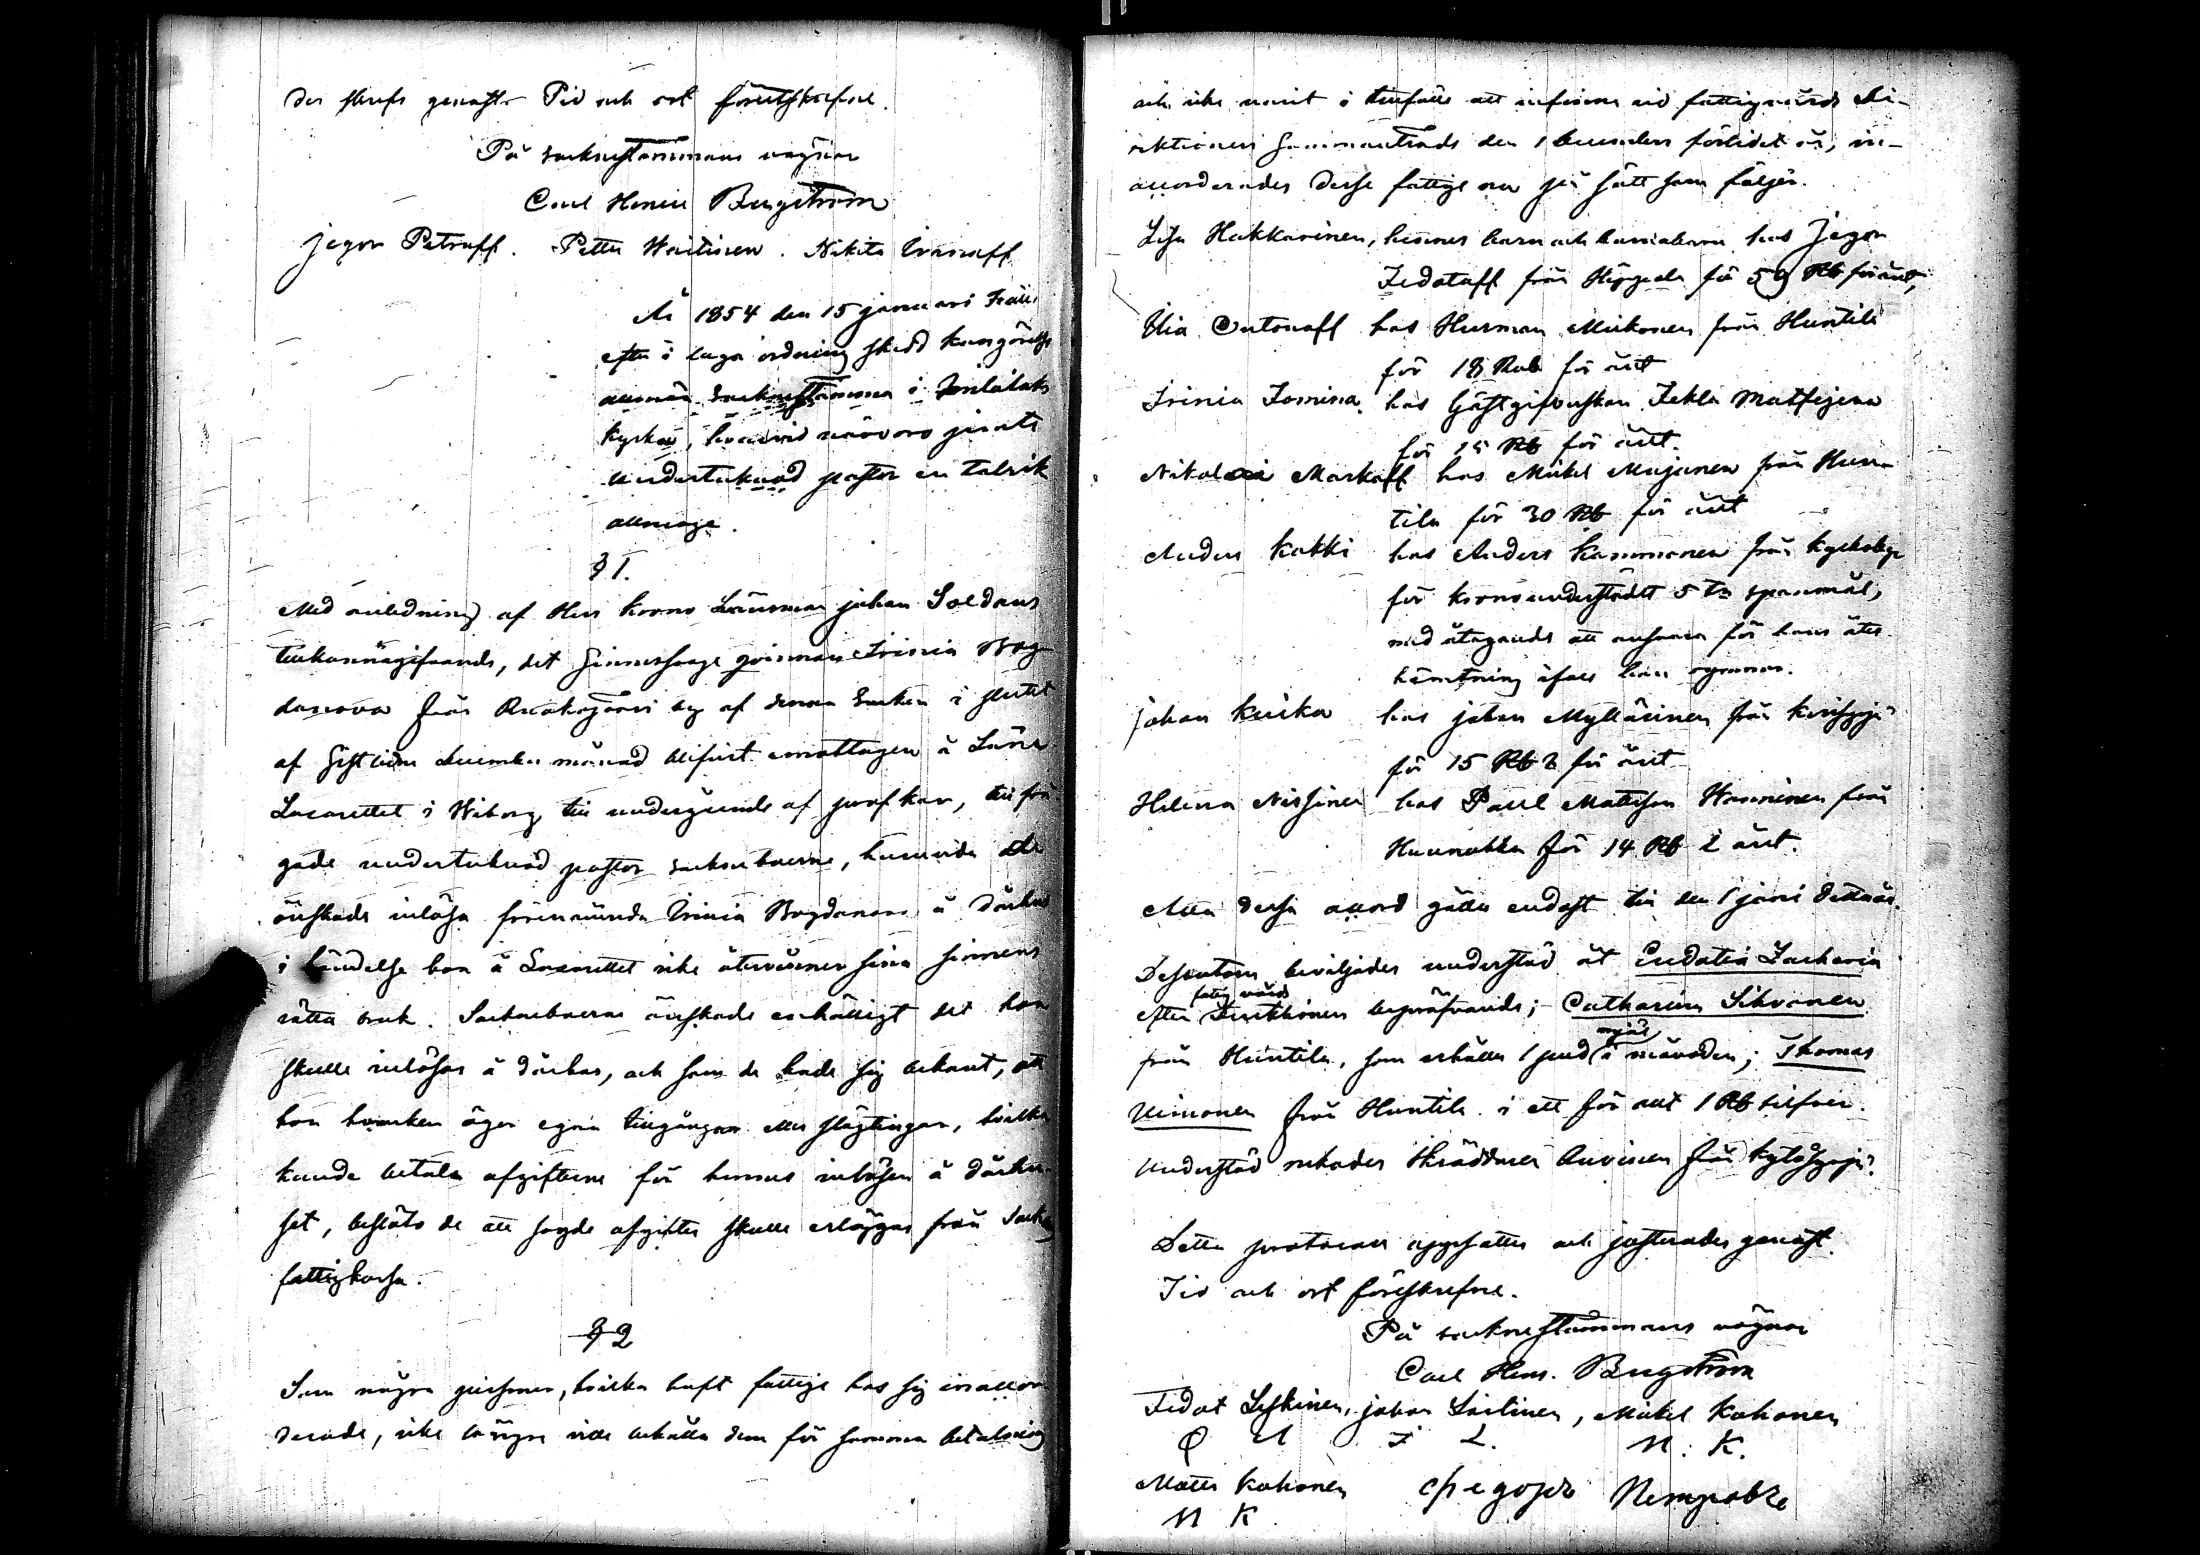 des skrefs genast. Tid och ort förutskrefne.
På Socknestämmans vägnar
Carl Henric Bergström
Jegor Petroff. Petter Waitinen. Nikita Ivanoff
År 1854 den 15 januari
efter i laga ordning skedd kungörelse
allmän Sockne stämma i
kyrka, hvarvid närvoro jemte
undertecknad pastor en talrik
allmoge.
§ 1.
Med anledning af Herr krono Länsman Johan Soldans
tillkännagifvande, det sinnessvaga qvinnan Irinia Bog-
danova från by af denna Socken i slutet
af sistl. December månad blifvit emottagen å Läns
Lazarettet i Wiborg till undergående af prof kur, tillfrå-
gade undertecknad pastor sockneboerne, huruvida de
önskade inlösa förenämnda Irinia Bogdanova å Dårhus
i händelse hon å Lazarettet icke återvinner sina sinnens
rätta bruk. Sockneboerne önskade enhälligt det hon
skulle inlösas å dårhus, och som de hade sig bekant, att
hon hvarken äger egna tillgångar eller slägtingar, hvilka
kunde betala afgifterne för hennes inlösen å dårhu-
set, beslöto de att sagde afgifter skulle erläggas från Sockn
fattigkassa.
§ 2
Som några personer, hvilka haft fattige hos sig inackor-
derade, icke längre ville behålla dem för samma betalning
och icke varit i tillfälle att infinna sid fattigvårds Di-
rektionens sammanträde den 1 December förlidet år, in-
ackorderades desse fattige nu på sätt som följer.
Lisa Hakkarinen, hennes barn och barnabarn hos Jegor
Fedotoff från för 50 Rb för året,
Ilia Antonoff hos Herman Mikonen från Huntila
för 18 Rub för året
Irinia Fomina hos Gästgifverskan Tekla Matfejeva
för 15 Rb för året.
Nikolai Markoff hos Mikel Mujunen från Hun-
tila för 30 Rb för året
Anders Kokki hos Anders Kammonen från
för kronounderstödet 5 Tn spanmål,
med åtagande att ansvara för hans åter
hämtning ifall han rymmer.
Johan Kuika hos Johan Myllärinen från
för 15 Rb för året
Helena Nissinen hos Paul Mattsson Wanninen från
Huunukka för 14 Rb i året.
Alla dessa ackord gälla endast till den 1 juni detta år.
Dessutom beviljades understöd åt Eudotia Zacharia
fattig vårds
efter Direktionens bepröfvande; Catharina Sikvonen
mjöl
från Huntila, som erhåller 1 pud i månaden; Thomas
Uimonen från Huntila i ett för allt 1 Rb silfver.
Understöd nekades Skräddaren Anvinen från
Detta protocoll uppsattes och justerades genast.
Tid och ort föreskrefne.
På socknestämmans vägnar
Carl Henr. Bergström
Fedot Leskinen, Johan Laitinen, Mikel Kohonen
I L. M. K.
Matts Kohonen Федоръ Петровъ
M K